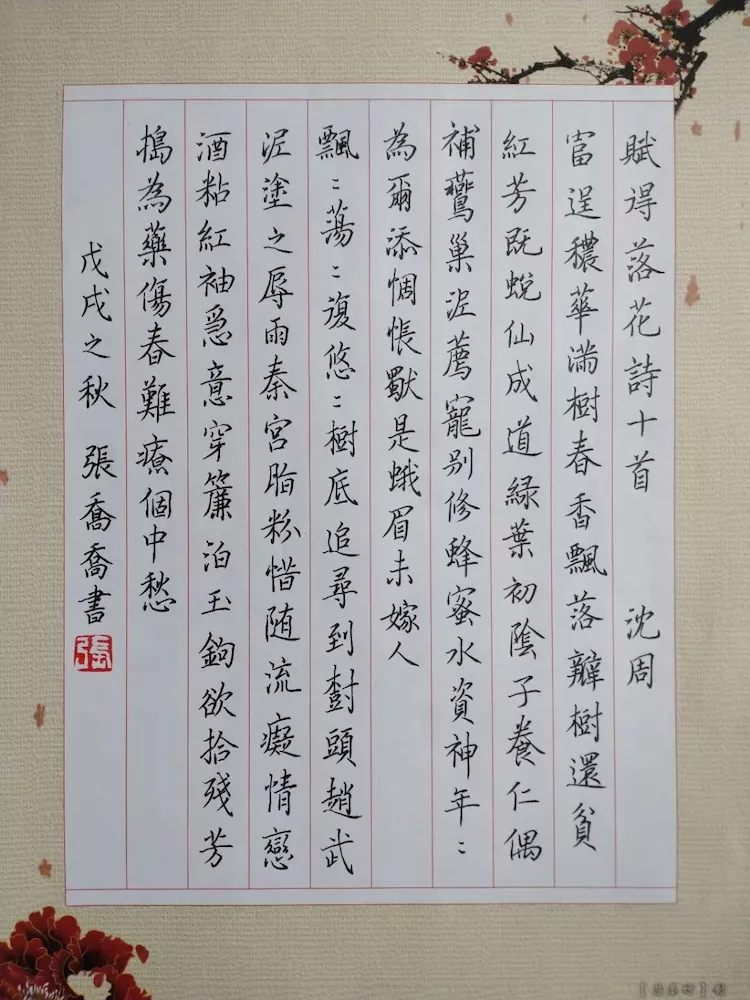 賦得落花詩十首 沈周
富逞穠華滿樹春香飄落瓣樹還貧
紅芳既蛻仙成道綠葉初陰子養仁偶
補鷰巢泥薦寵別修蜂蜜水資神年〻
為爾添惆悵獸是蛾眉未嫁人
飄〻蕩〻復悠〻樹底追尋到樹頭趙武
泥塗之辱雨秦宮脂粉惜随流癡情戀
酒粘紅袖急意穿簾泊玉鉤欲拾殘芳
搗為藥傷春難療個中愁
戊戌之秋 張喬喬書
張